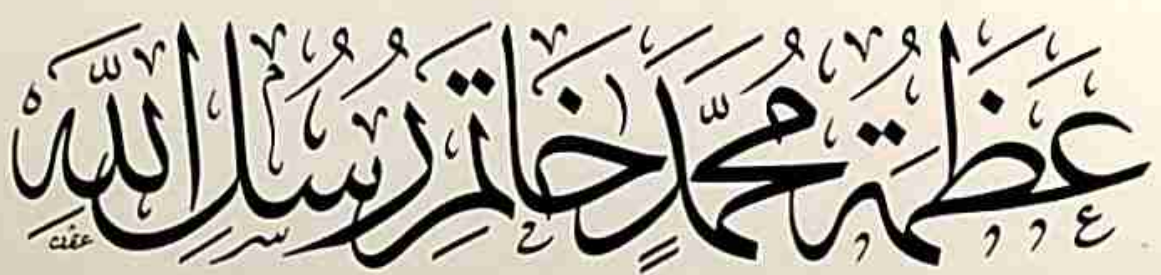 عَظَمَةُ مُحَمَّدٍ خَاتَمِ رُسُلِ اللَّهِ